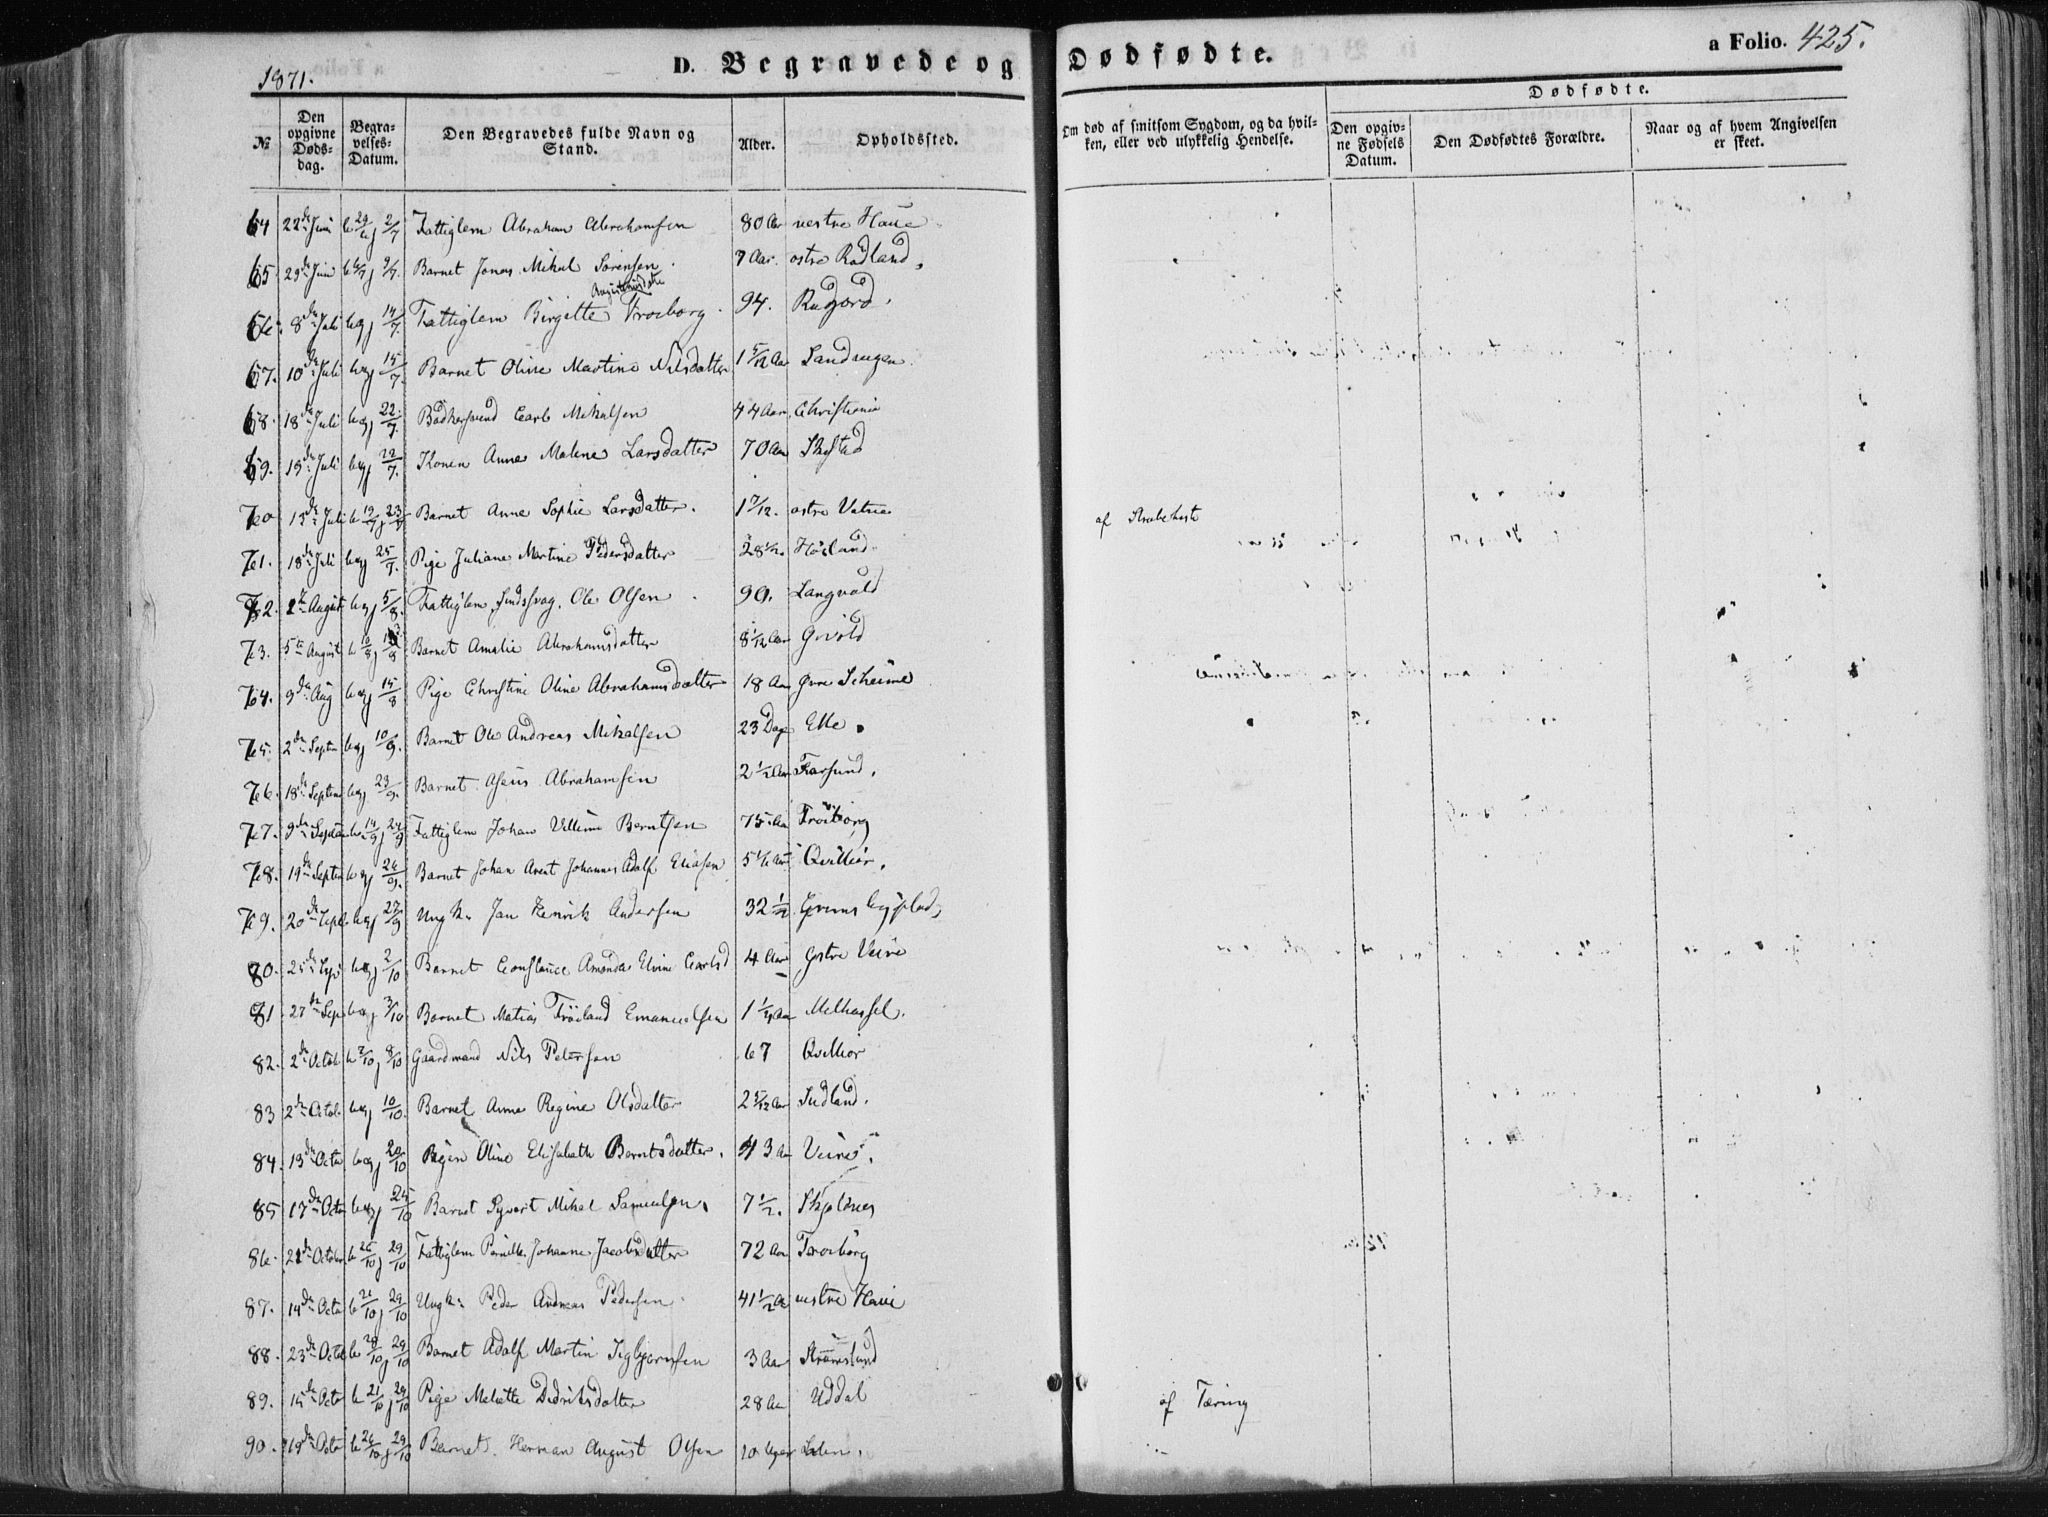 1871.
D. Begravede og Dødfødte.
a Folio. 425.
№
Den opgivne Døds-dag.
Begra-velses-Datum.
Den Begravedes fulde Navn og Stand.
Alder.
Opholdssted.
Om død af smitsom Sygdom, og da hvil-ken, eller ved ulykkelig Hendelse.
Dødfødte.
Den opgiv-ne Fødsels Datum.
Den Dødfødtes Forældre.
Naar og af hvem Angivelsen er skeet.
64 22de Juni b 29/6 j 2/7 Fattiglem Abraham Abrahamsen 80 Aar vestre Haue
65. 29de Juni b 6/7 j 9/7. Barnet Jonas Mikal Sørensen. 7 Aar. østre Rødland.
66. 8de Juli b og j 14/7. Fattiglem Birgitte Froiborg. 94. Rudjord.
67. 10de Juli b og j 15/7. Barnet Oline Martine Nilsdatter 1 5/12 Aar Sandungen
68. 18de Juli b og j 22/7. Bødkersvend Carl Mikalsen 44 Aar Christiania
69. 15de Juli b og j 22/7. Konen Anne Malene Larsdatter 70 Aar
70 15de Juli b 19/7 j 23/7 Barnet Anne Sophie Larsdatter. 1 7/12. østre Vatne af Strubehoste
71. 18de Juli b og j 25/7. Pige Juliane Martine Pedersdatter 28 1/2. Høiland
72. August b og j 5/8. Fattiglem Ole Olsen 90. Langvold
73. 5te August Barnet Amalie Abrahamsdatter 8 1/12 Aar
74. 9de Aug b og j 15/8 Pige Christine Oline Abrahamsdatter 18 Aar øvre Skeime
75. 2de Septr b og j 10/9. Barnet Ole Andreas Mikalsen 23 Dage Elle.
76. 18de Septem b og j 23/9. Barnet Asbus Abrahamsen 2 1/2 Aar Farsund.
77. 9de Septem b 14/9 j 24/9 Fattiglem Johan Villum Berntsen 75 Aar Froiborg
78. 19de Septem b og j 26/9. Barnet Johan Arent Johannes Adolf Eliasen Qvilliør.
79. 20de Septb b og j 27/9 Ungk. Jan Henrik Andersen 32 1/2
80. 25de b og j 2/10 Barnet Constance Amanda Elvine Carlsd 4 Aar Veire
81 27de Sep b og j 3/10 Barnet Matias Frøiland Emanuelsen 1 1/4 Aar Melhassel.
82. 2de Octob b 7/10, 8/10 Gaardmand Nils Petersen 67 Qvillior
83 2de Octob. b og j 10/10. Barnet Anne Regine Olsdatter 2 5/12 Aar Sudland.
84. 13de Octo b og j 20/10 Pigen Oline Elisabeth Berntsdatter. 43 Aar Veire.
85 17de Octo b og j 25/10 Barnet Syvert Mikal Samuelsen. 7 1/2. Skjolnes
86. 21de October b 26/10, 29/10 Fattiglem Pernille Johanne Jacobsdatter 72 Aar Froiborg
87. 14de Octo b 21/10, 29/10 Ungk: Peder Andreas Pedersen 41 1/2 Aar vestre Haue
88. 23de Octob b 28/10 j 29/10 Barnet Adolf Martin Sigbjørnsen 3 Aar Strømslund
89. 15de Octo b 21/10 j 29/10 Pige Meliette Didriksdatter 28 Aar Uddal af Tæring
90. 19de Octo b 26/10 j 29/10 Barnet Herman August Olsen 10 Uger